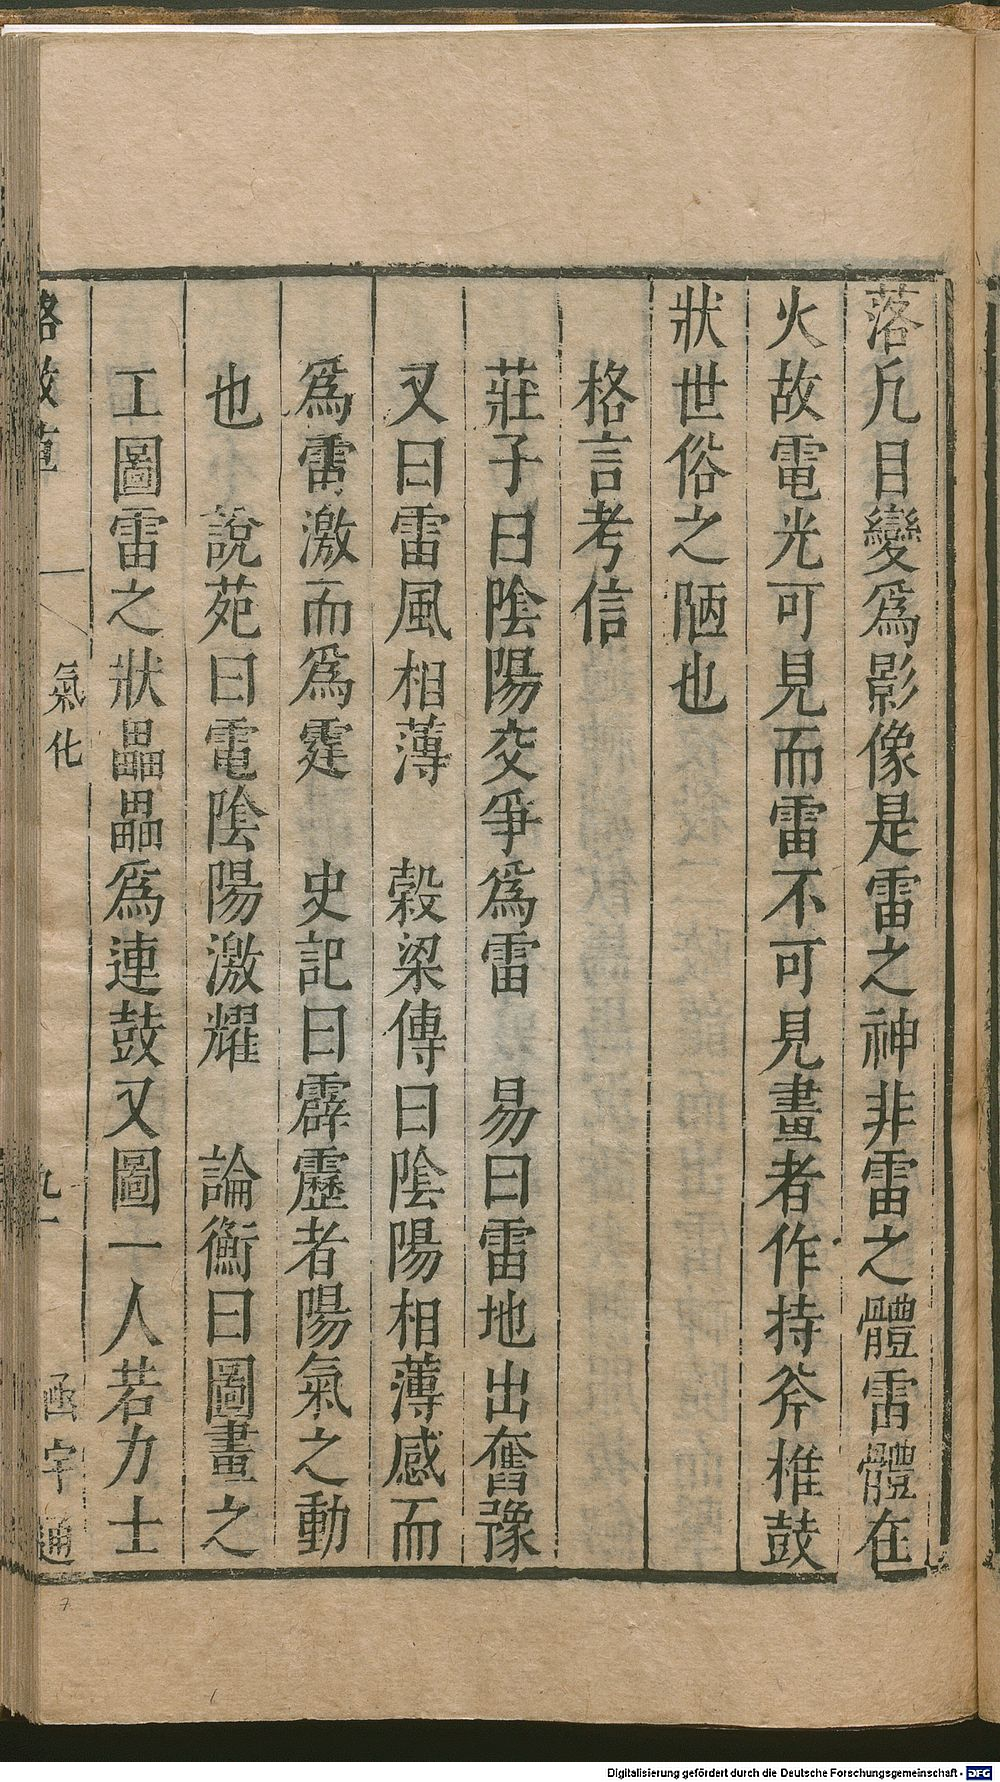 落凡目變爲影像是雷之神非雷之體雷體在
火故電光可見而雷不可見畫者作持斧椎鼓
狀世俗之陋也
格言考信
莊子曰陰陽交爭爲雷　易曰雷地出奮豫
又曰雷風相薄　穀梁傳曰陰陽相薄感而
爲雷激而爲霆　史記曰霹靂者陽氣之動
也　說苑曰電陰陽激耀　論衡曰圖畫之
工圖雷之狀畾畾爲連鼓又圖一人若力士
格致草　氣化　九一　函宇通
7
Digitalisierung gefördert durch die Deutsche Forschungsgemeinschaft - DFG